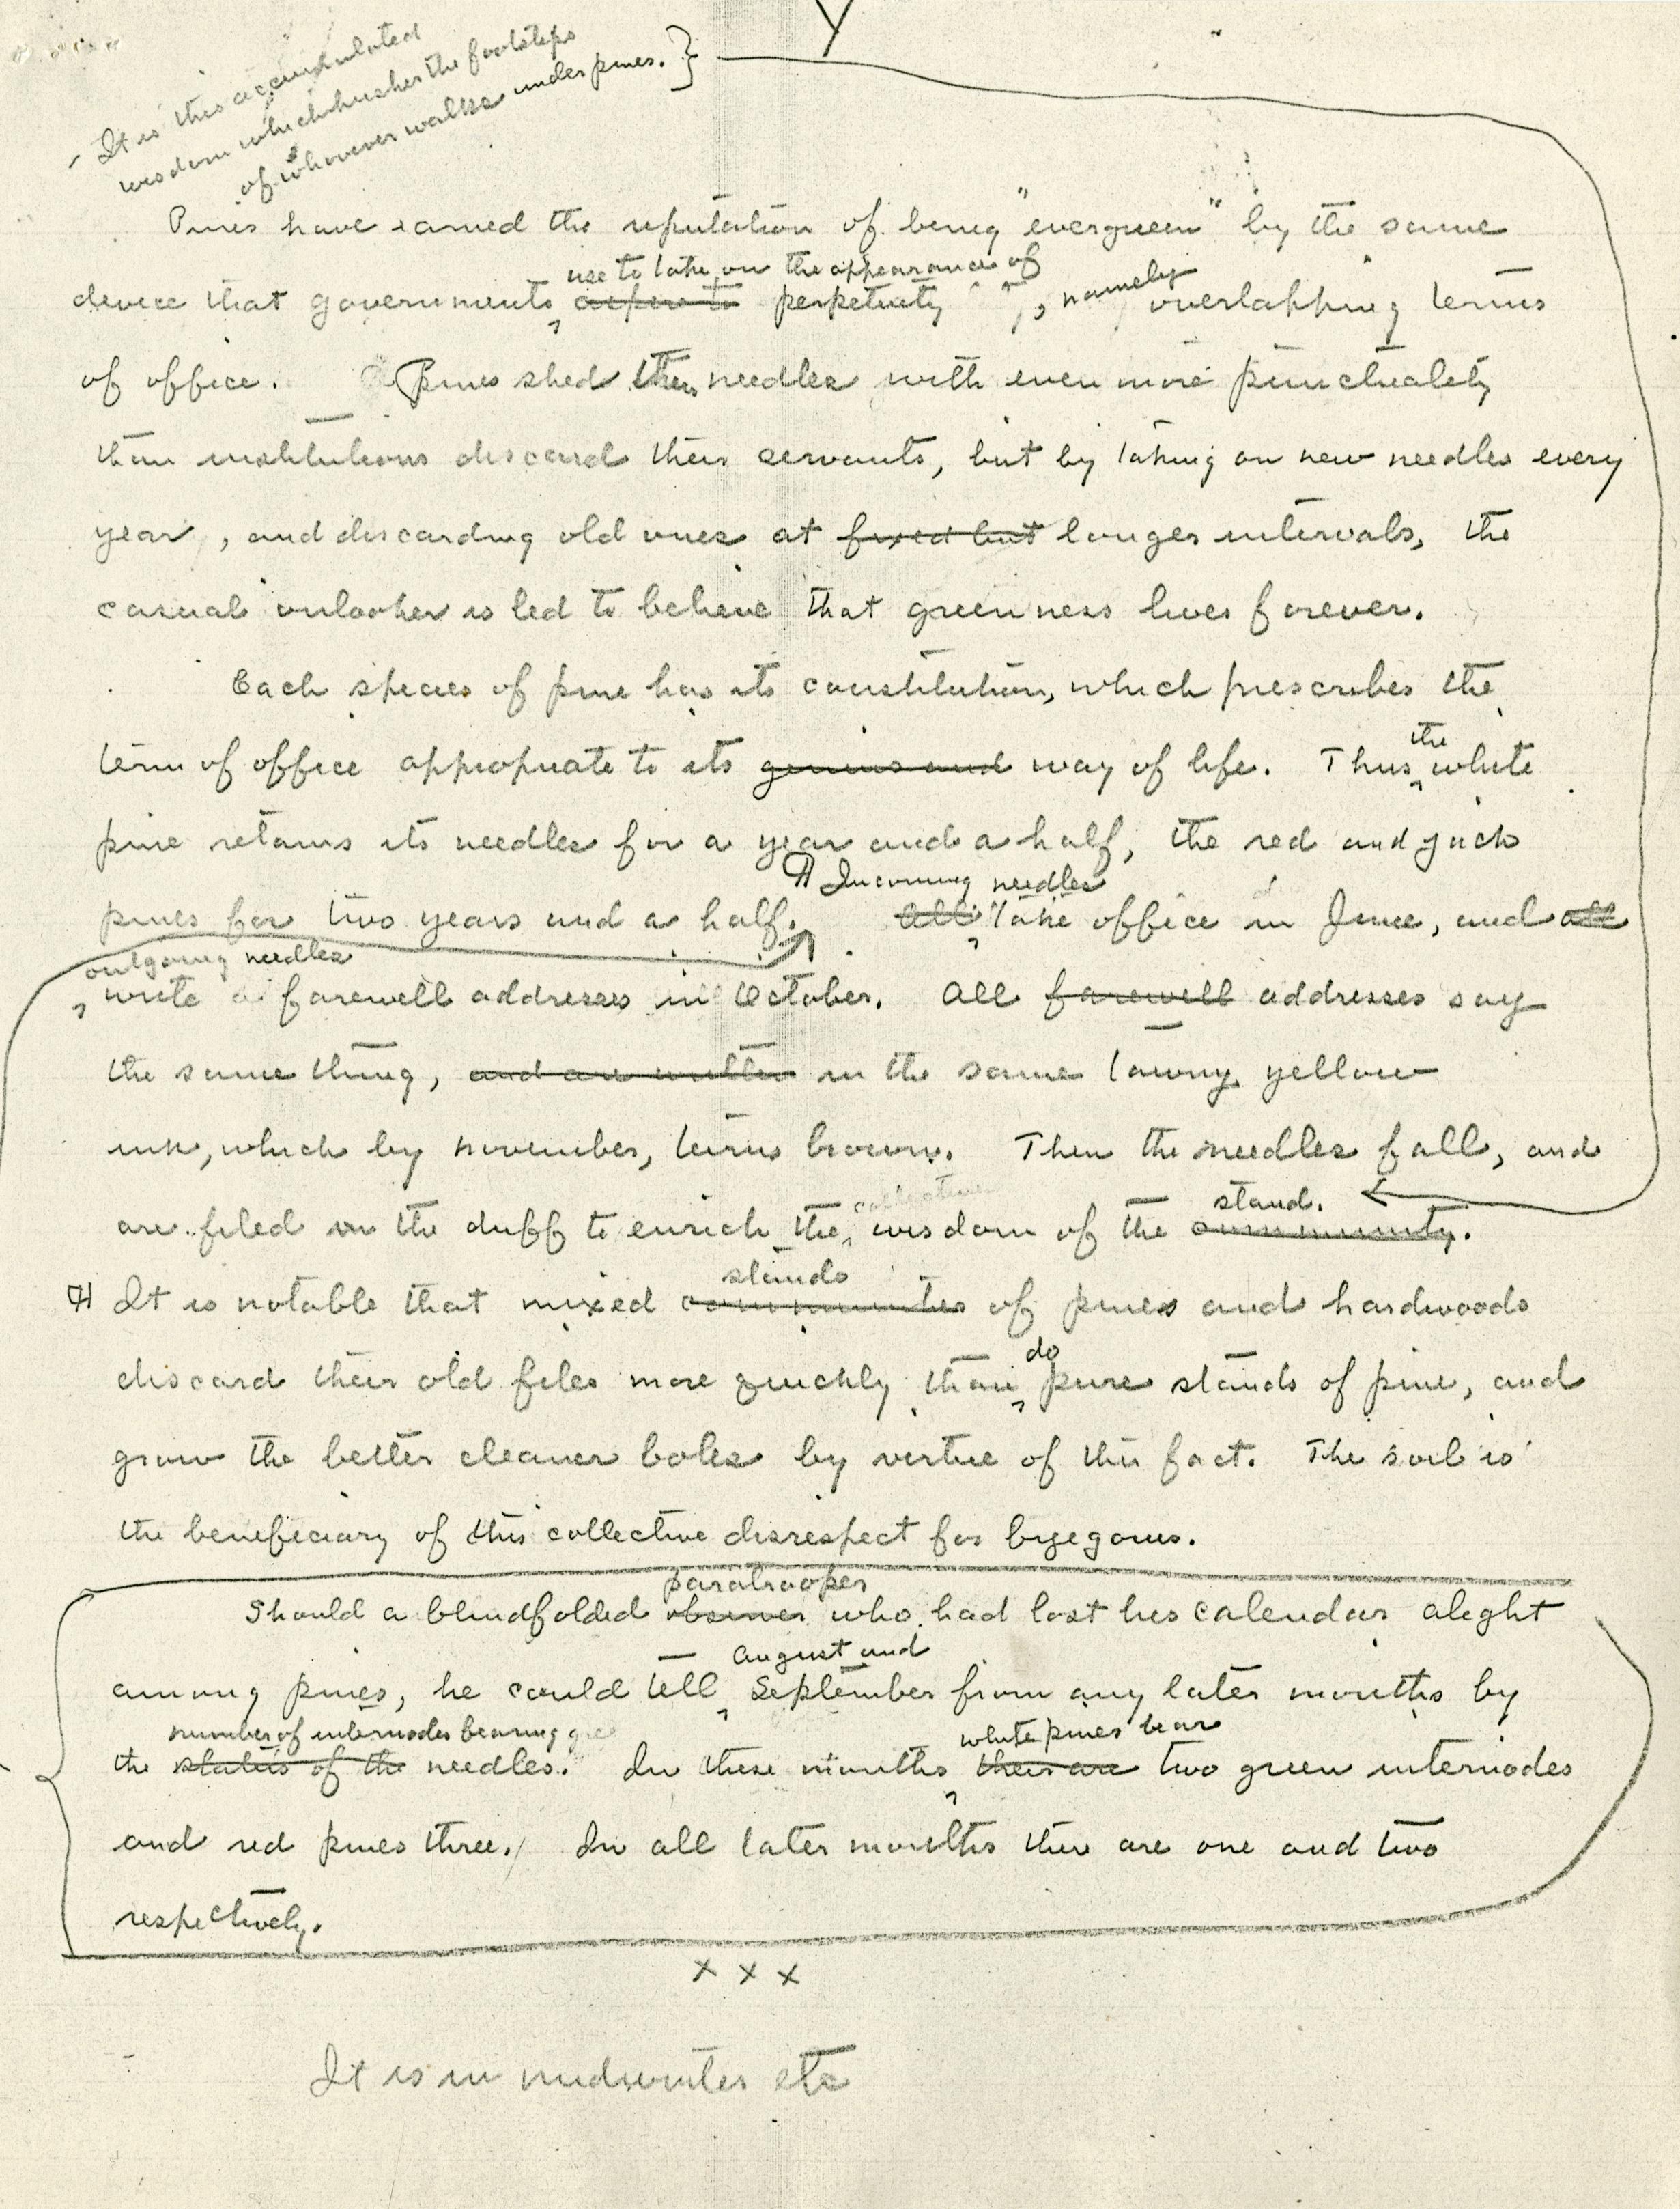 Y
- It is this accumulated
wisdom which hushes the footsteps
of whoever walks under pines. }
Pines have earned the reputation of being "evergreen" by the same
use to take on the appearance of
device that governments aspire to perpetuity, namely overlapping terms
of office. Pines shed their needles with even more punctuality
than institutions discard their servants, but by taking on new needles every
year, and discarding old ones at fixed but longer intervals, the
casual onlooker is led to believe that greenness lives forever.
Each species of pine has its constitution, which prescribes the
term of office appropriate to its genius and way of life. Thus the white
pine retains its needles for a year and a half, the red and jack
¶ Incoming needles
pines for two years and a half. all take office in June, and all
outgoing needles
write a farewell addresses in October. All farewell addresses say
the same thing, and are written in the same tawny yellow
ink, which by november, turns brown. Then the needles fall, and
collective stand.
are filed in the duff to enrich the wisdom of the community.
stands
¶ It is notable that mixed communities of pines and hardwoods
do
discard their old files more quickly than pure stands of pine, and
grow the better cleaner boles by virtue of this fact. The soil is
the beneficiary of this collective disrespect for byegones.
paratrooper
Should a blindfolded observer who had lost his calendar alight
August and
among pines, he could tell September from any later months by
number of internodes bearing gre white pines bear
the status of the needles. In these months there are two green internodes
and red pines three. In all later months there are one and two
respectively.
x x x
It is in midwinter etc